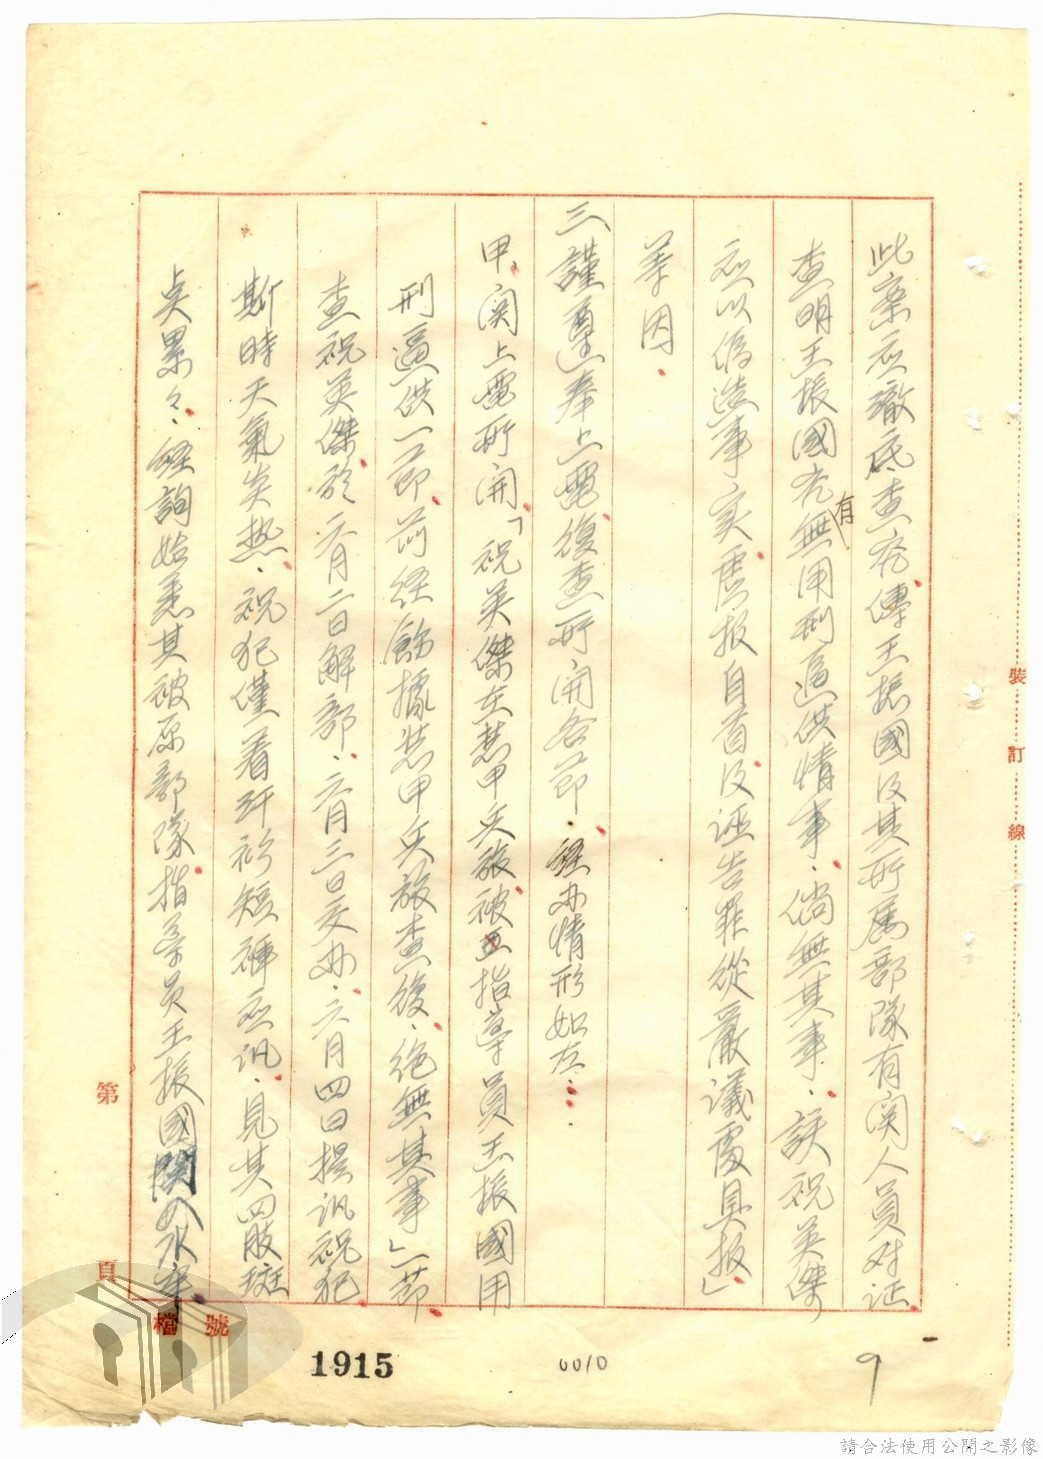 此案应徹底查究傳王振國及其所属部隊有関人員对证
查明王振國究有無用刑逼供情事、倘無其事、該祝英傑
应以偽造事实虛报自首及誣告罪從嚴議處具报」
等因.
三、謹遵奉上電復查所開各節.經办情形如左:..
甲、関上電所開「祝英傑在裝甲兵旅被王指導員王振國用
刑逼供一節、前经飭據裝甲兵旅查復、绝無其事」一節
查祝英傑於六月二日解部、六月三日交办、六月四日提讯祝犯
斯時天氣炎热、祝犯僅着汗衫短褲应讯、見其四肢斑
点累々、經詢始悉其被原部隊指导员王振國関入水牢
裝
訂
線
第
頁
檔 號
1915
0010
9
請合法使用公開之影像